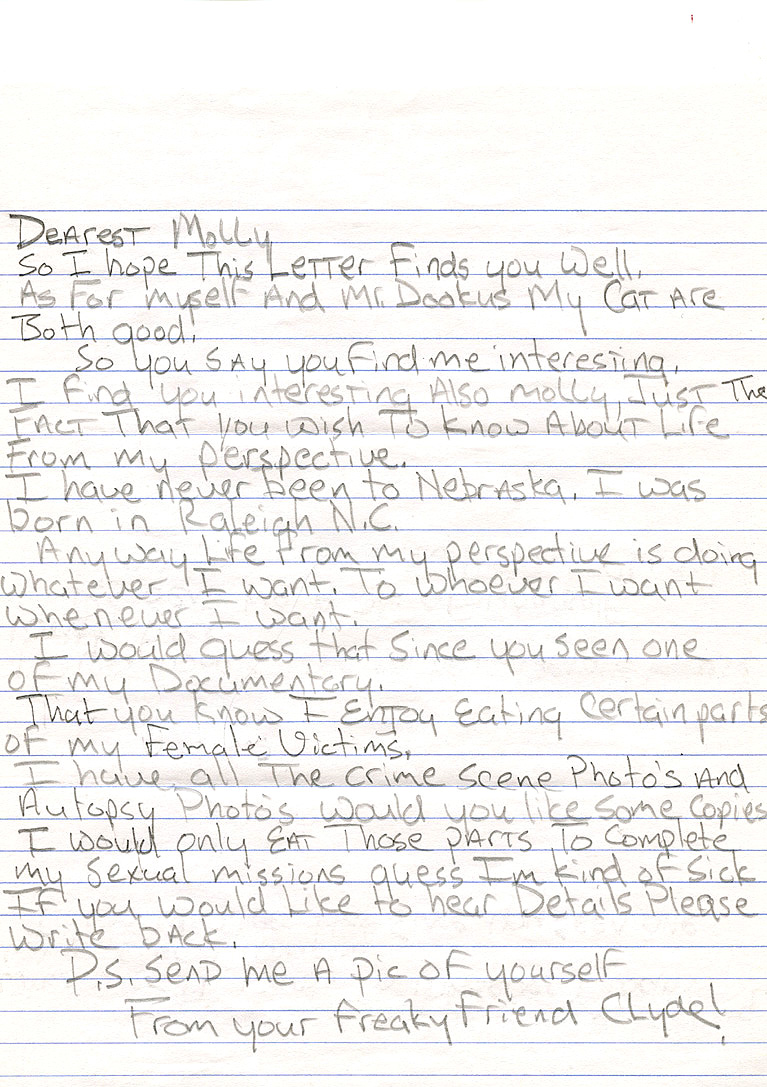 Dearest Molly
So I hope This Letter Finds you Well.
As For myself And Mr. Dookus My Cat Are
Both good!
So you SAY you find me interesting.
I find you interesting Also molly, Just The
FACT That you wish To know About Life
From my perspective.
I have never been to Nebraska. I was
born in Raleigh N.C.
Anyway Life from my perspective is doing
whatever I want. To whoever I want
whenever I want.
I would guess that since you seen one
of my Documentary.
That you know I Enjoy Eating Certain parts
of my Female Victims.
I have all The crime scene Photo's And
Autopsy Photo's would you like some Copies
I would only EAT Those pARTS To Complete
my sexual missions guess I'm kind of Sick
If you would Like to hear Details Please
write bAck.
P.S. Send me A pic of yourself
From your freaky friend Clyde!